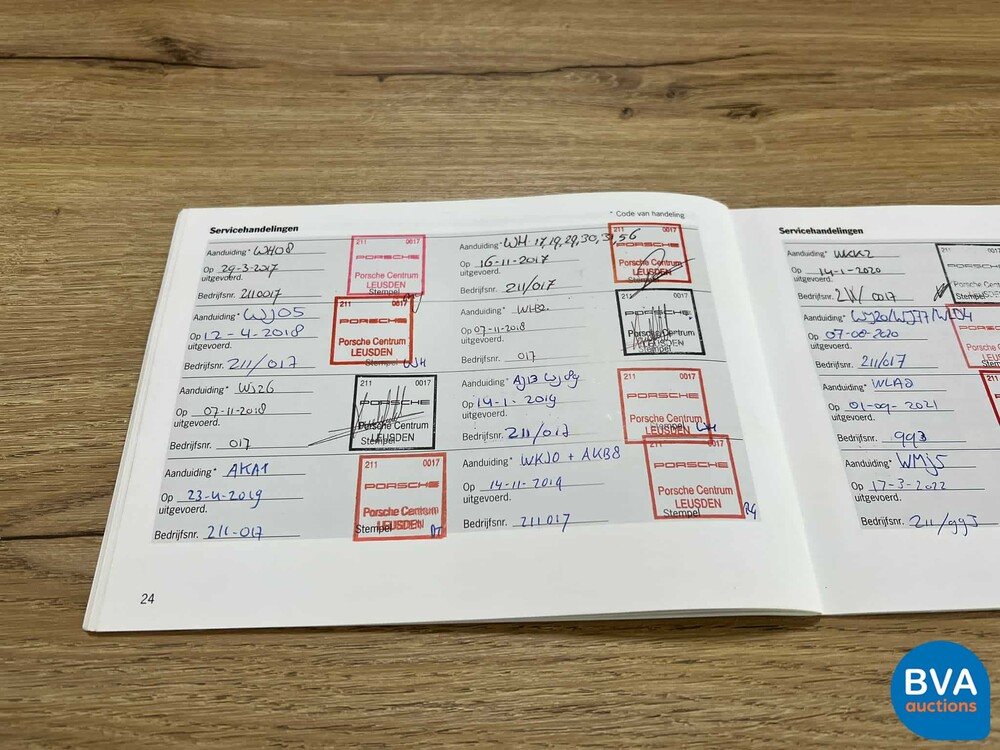 Servicehandelingen
* Code van handeling
Aanduiding* WH08
Op 29-3-2017
uitgevoerd.
Bedrijfsnr. 2110017
211 0017
PORSCHE
Porsche Centrum
LEUSDEN
Stempel
Aanduiding* WH 17,19,29,30,31,56
Op 16-11-2017
uitgevoerd.
Bedrijfsnr. 211/017
211 0017
PORSCHE
Porsche Centrum
LEUSDEN
Stempel
Aanduiding* WJ05
Op 12-4-2018
uitgevoerd.
Bedrijfsnr. 211/017
211 0017
PORSCHE
Porsche Centrum
LEUSDEN
Stempel WH
Aanduiding*
Op 07-11-2018
uitgevoerd.
Bedrijfsnr. 017
211 0017
PORSCHE
Porsche Centrum
LEUSDEN
Stempel
Aanduiding* WJ26
Op 07-11-2018
uitgevoerd.
Bedrijfsnr. 017
211 0017
PORSCHE
Porsche Centrum
LEUSDEN
Stempel
Aanduiding* AJ13 WJ89
Op 14-1-2019
uitgevoerd.
Bedrijfsnr. 211/017
211 0017
PORSCHE
Porsche Centrum
LEUSDEN
Stempel WH
Aanduiding* AKA1
Op 23-4-2019
uitgevoerd.
Bedrijfsnr. 211-017
211 0017
PORSCHE
Porsche Centrum
LEUSDEN
Stempel
Aanduiding* WKJ0 + AKB8
Op 14-11-2019
uitgevoerd.
Bedrijfsnr. 211017
211 0017
PORSCHE
Porsche Centrum
LEUSDEN
Stempel
24
Servicehandelingen
Aanduiding* WKK2
Op 14-1-2020
uitgevoerd.
Bedrijfsnr. 0017
211
PORSCHE
Porsche Cent
LEUSDE
Stempel
Aanduiding*
Op 07-08-2020
uitgevoerd.
Bedrijfsnr. 211/017
211
Porsche
LEU
Stempel
Aanduiding* WLA2
Op 01-09-2021
uitgevoerd.
Bedrijfsnr. 993
Aanduiding* WMJ5
Op 17-3-2022
uitgevoerd.
Bedrijfsnr. 211/993
BVA
auctions